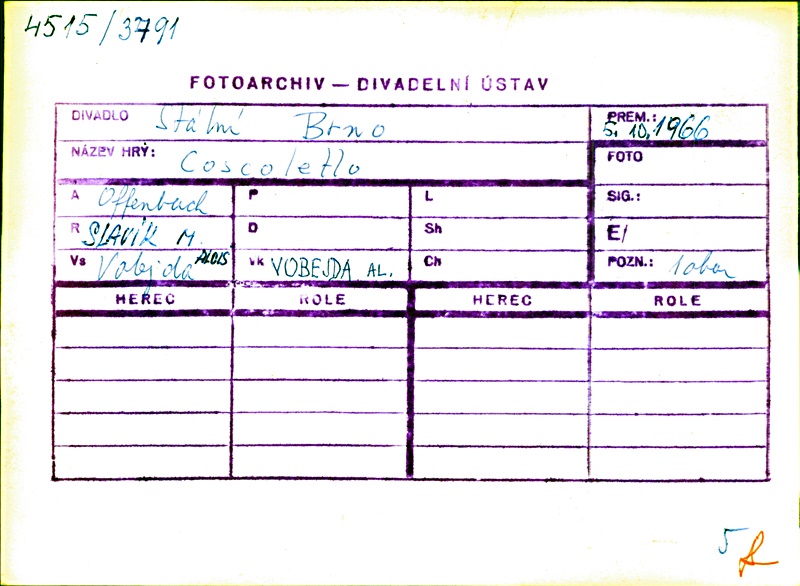 4515/3791
FOTOARCHIV — DIVADELNÍ ÚSTAV
DIVADLO Státní Brno
PREM.: 5. 10. 1966
NÁZEV HRÝ: Coscoletto
FOTO
A Offenbach P L SIG.:
R SLAVÍK M. D Sh E/
Vs Vobejda ALOIS Vk VOBEJDA AL. Ch POZN.:
HEREC ROLE HEREC ROLE
5